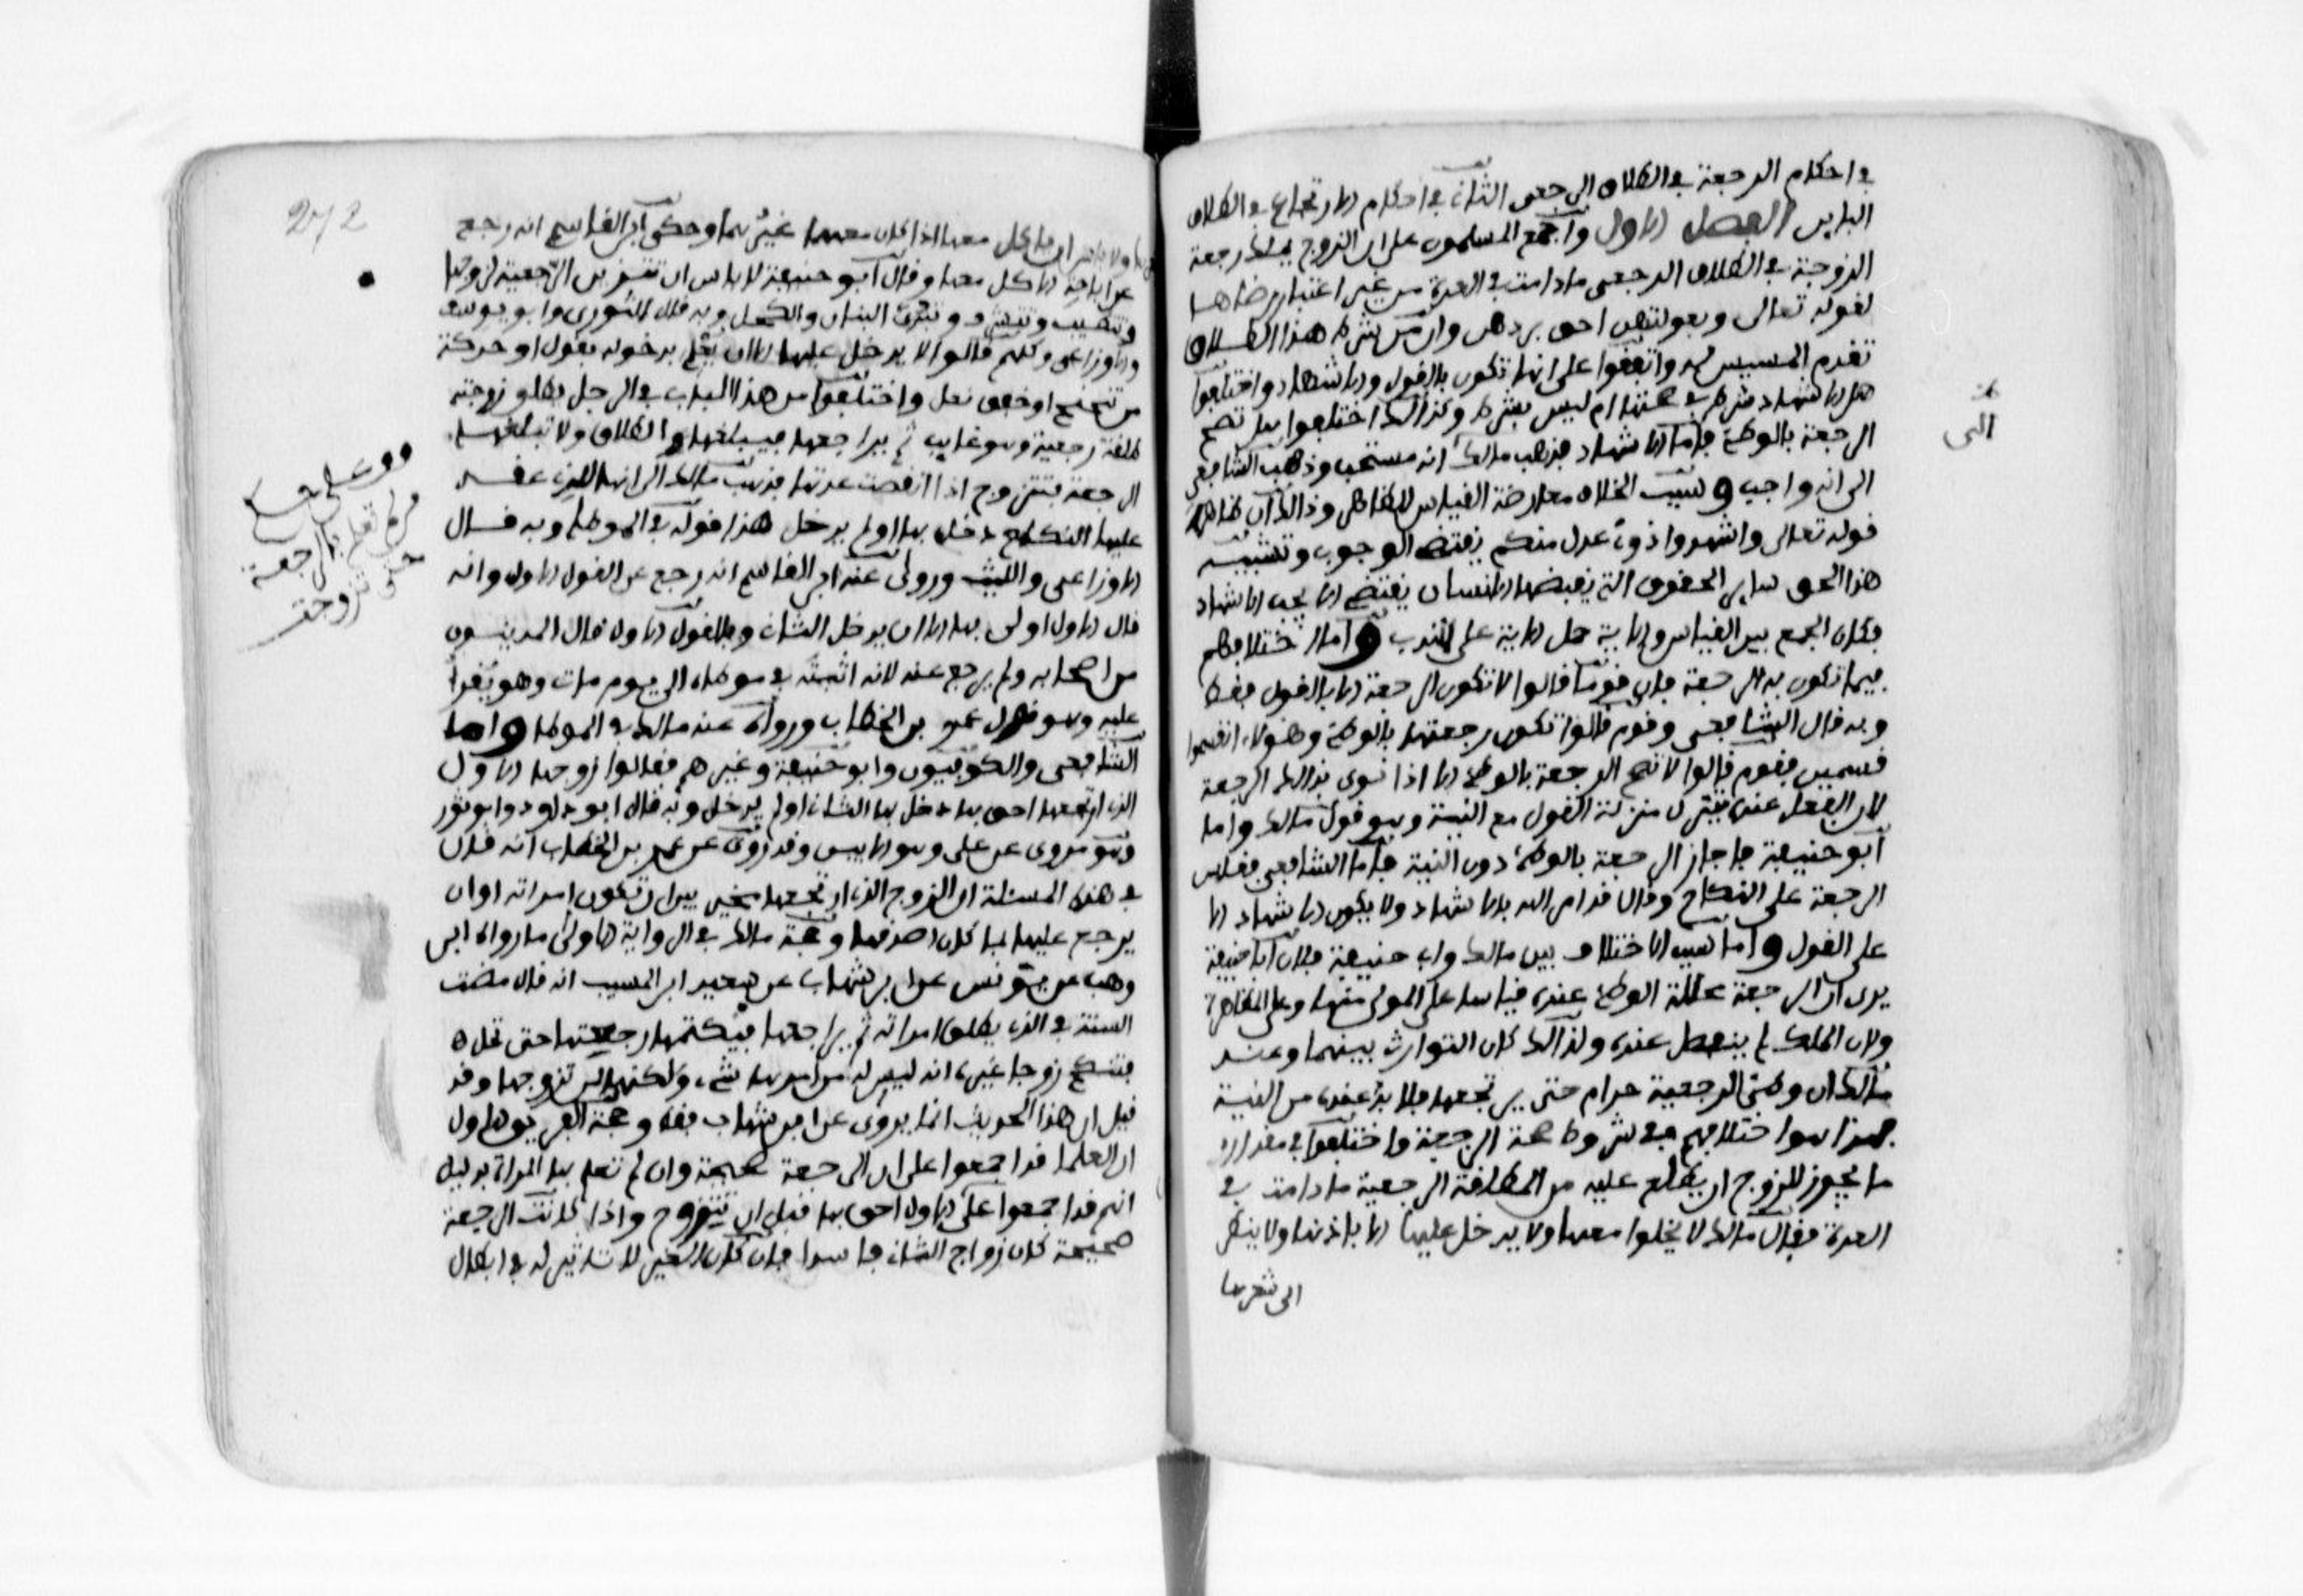 في احكام الرجعة في الطلاق الرجعي الثاني في احكام الارتجاع في الطلاق
الباين الفصل الاول واجمع المسلمون على ان الزوج يملك رجعة
الزوجة في الطلاق الرجعي ما دامت في العدة من غير اعتبار رضاها
لقوله تعالى وبعولتهن احق بردهن وان من شرط هذا الطلاق
تقدم المسيس له واتفقوا على انها تكون بالقول والاشهاد واختلفوا
هل الاشهاد شرط في صحتها ام ليس بشرط وكذالك اختلفوا هل تصح
الرجعة بالوطئ فاما الاشهاد فذهب مالك انه مستحب وذهب الشافعي
الى انه واجب وسبب الخلاف معارضة القياس للظاهر وذالك ان ظاهر
قوله تعالى واشهدوا ذوى عدل منكم يقتضي الوجوب وتشبيه
هذا الحق بساير الحقوق التي يقبضها الانسان يقتضي الا يجب الاشهاد
فكان الجمع بين القياس والاية حمل الاية على الندب واما اختلافهم
فيما تكون به الرجعة فان قوما قالوا لا تكون الرجعة الا بالقول فقط
وبه قال الشافعي وقوم قالوا تكون رجعتها بالوطئ وهولاء انقسموا
قسمين فقوم قالوا لا تصح الرجعة بالوطئ الا اذا نوى بذالك الرجعة
لان الفعل عنده يتنزل منزلة القول مع النية وهو قول مالك واما
ابو حنيفة فاجاز الرجعة بالوطئ دون النية فاما الشافعي فقاس
الرجعة على النكاح وقال قد امر الله بالاشهاد ولا يكون الاشهاد الا
على القول واما سبب الاختلاف بين مالك وابي حنيفة فلان ابا حنيفة
يرى ان الرجعة محللة الوطئ عنده قياسا على المولى منها وعلى المظاهرة
ولان الملك لم ينفصل عنده ولذالك كان التوارث بينهما وعند
مالك ان وطئ الرجعية حرام حتى يرتجعها فلا بد عنده من النية
فهذا هو اختلافهم في شروط صحة الرجعة واختلفوا في مقدار
ما يجوز للزوج ان يطلع عليه من المطلقة الرجعية ما دامت في
العدة فقال مالك لا يخلوا معها ولا يدخل عليها الا باذنها ولا ينظر
الى شعرها
الى
272
ولا باس ان ياكل معها اذا كان معهما غيرهما وحكى ابن القاسم انه رجع
عن اباحة الاكل معها وقال ابو حنيفة لا باس ان تتزين الرجعية لزوجها
وتتطيب وتتشوف وتبدي البنان والكحل وبه قال الثوري وابو يوسف
والاوزاعي وكلهم قالوا لا يدخل عليها الا ان يعلم بدخوله بقول او حركة
من تنحنح او خفق نعل واختلفوا من هذا الباب في الرجل يطلق زوجته
طلقة رجعية وهو غايب ثم يراجعها فيبلغها الطلاق ولا تبلغها
الرجعة فتتزوج اذا انقضت عدتها فذهب مالك الى انها للذي عقد
عليها النكاح دخل بها او لم يدخل هذا قوله في الموطا وبه قال
الاوزاعي والليث وروى عنه ابن القاسم انه رجع عن القول الاول وانه
قال الاول اولى بها الا ان يدخل الثاني وبالقول الاول قال المدنيون
من اصحابه ولم يرجع عنه لانه اثبته في موطاه الى يوم مات وهو يقرا
عليه وهو قول عمر بن الخطاب ورواه عنه مالك في الموطا واما
الشافعي والكوفيون وابو حنيفة وغيرهم فقالوا زوجها الاول
الذي ارتجعها احق بها دخل بها الثاني او لم يدخل وبه قال ابو داود وابو ثور
وهو مروى عن على وهو الابين وقد روى عن عمر بن الخطاب انه قال
في هذه المسئلة ان الزوج الذي ارتجعها مخير بين ان تكون امراته او ان
يرجع عليها بما كان اصدقها وحجة مالك في الرواية الاولى ما رواه ابن
وهب عن يونس عن ابن شهاب عن سعيد ابن المسيب انه قال مضت
السنة في الذي يطلق امراته ثم يراجعها فيكتمها رجعتها حتى تحل
فتنكح زوجا غيره انه ليس له من امرها شيء ولكنها لمن تزوجها وقد
قيل ان هذا الحديث انما يروى عن ابن شهاب فقط وحجة الفريق الاول
ان العلما قد اجمعوا على ان الرجعة صحيحة وان لم تعلم بها المراة بدليل
انهم قد اجمعوا على ان الاول احق بها قبل ان تتزوج واذا كانت الرجعة
صحيحة كان زواج الثاني فاسدا فان نكاح الغير لا تاثير له في ابطال
تعلم بالرجعة
حتى تزوجت